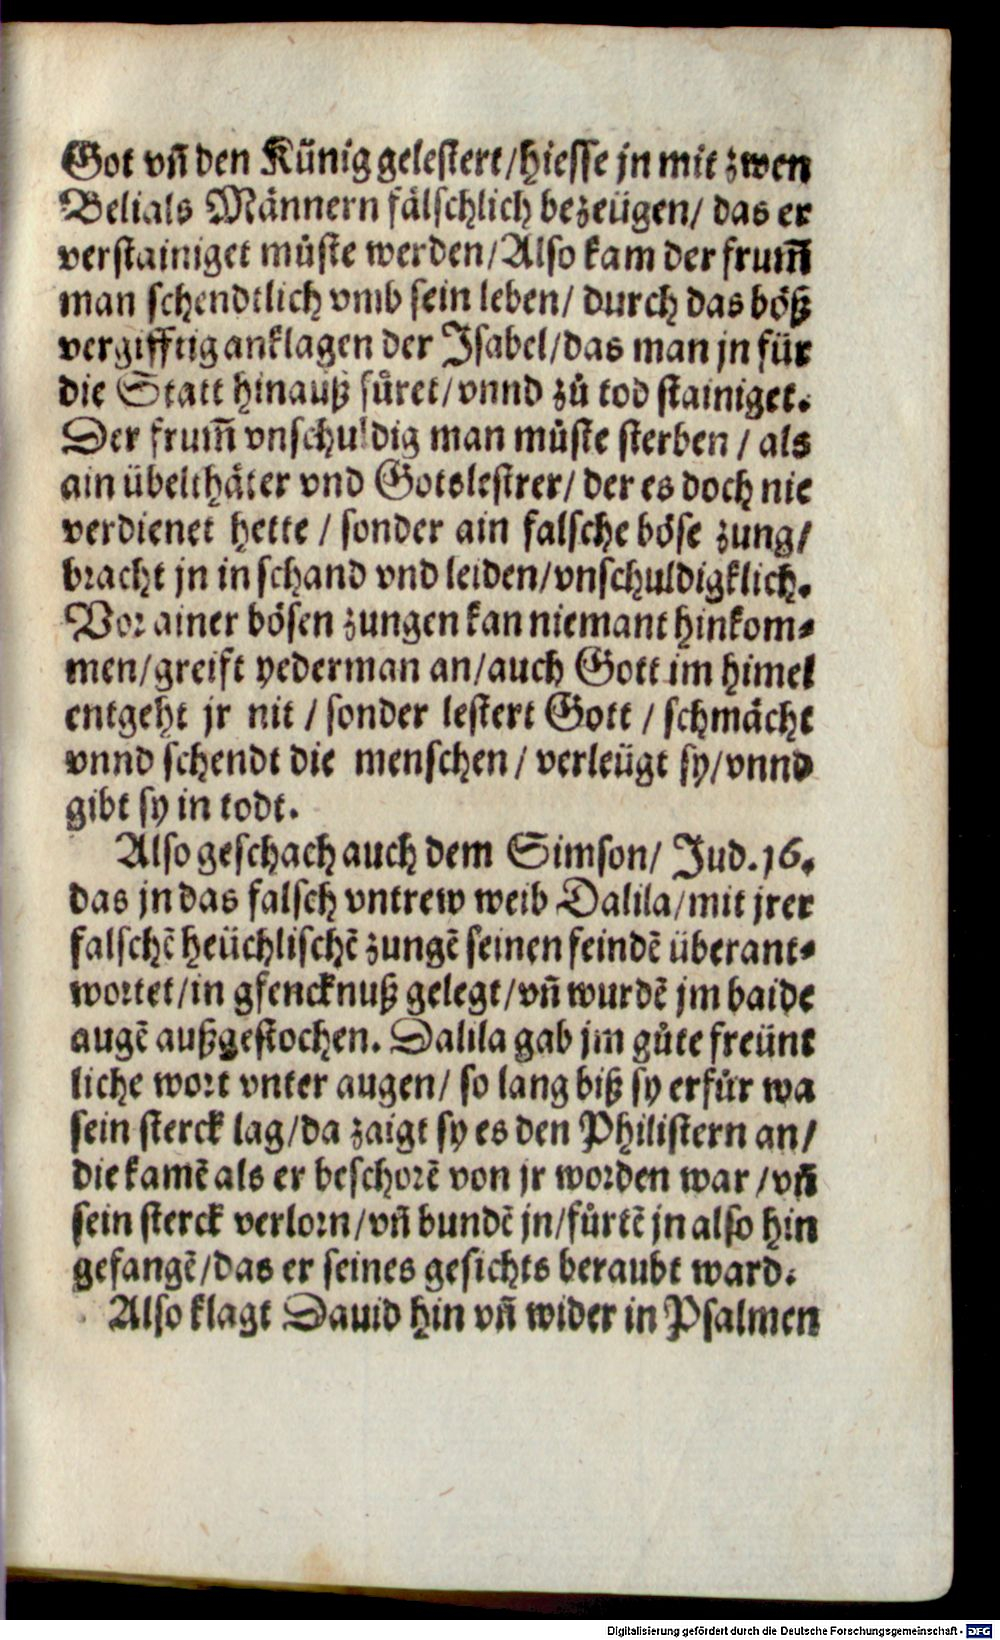 Got vñ den Künig gelestert/hiesse jn mit zwen
Belials Männern fälschlich bezeügen/ das er
verstainiget müste werden/Also kam der frum̃
man schendtlich vmb sein leben/ durch das böß
vergifftig anklagen der Jsabel/das man jn für
die Statt hinauß fůret/vnnd zů tod stainiget.
Der frum̃ vnschuldig man můste sterben / als
ain übelthäter vnd Gotslestrer/ der es doch nie
verdienet hette / sonder ain falsche böse zung/
bracht jn in schand vnd leiden/vnschuldigklich.
Vor ainer bösen zungen kan niemant hinkom⸗
men/greift yederman an/auch Gott im himel
entgeht jr nit / sonder lestert Gott / schmächt
vnnd schendt die menschen / verleügt sy/vnnd
gibt sy in todt.
Also geschach auch dem Simson/ Jud.16.
das jn das falsch vntrew weib Dalila/mit jrer
falschẽ heüchlischẽ zungẽ seinen feindẽ überant⸗
wortet/in gfencknuß gelegt/vñ wurdẽ jm baide
augẽ außgestochen. Dalila gab jm gůte freünt
liche wort vnter augen/ so lang biß sy erfůr wa
sein sterck lag/da zaigt sy es den Philistern an/
die kamẽ als er beschorẽ von jr worden war /vñ
sein sterck verlorn/vñ bundẽ jn/fůrtẽ jn also hin
gefangẽ/das er seines gesichts beraubt ward.
Also klagt Dauid hin vñ wider in Psalmen
Digitalisierung gefördert durch die Deutsche Forschungsgemeinschaft - DFG